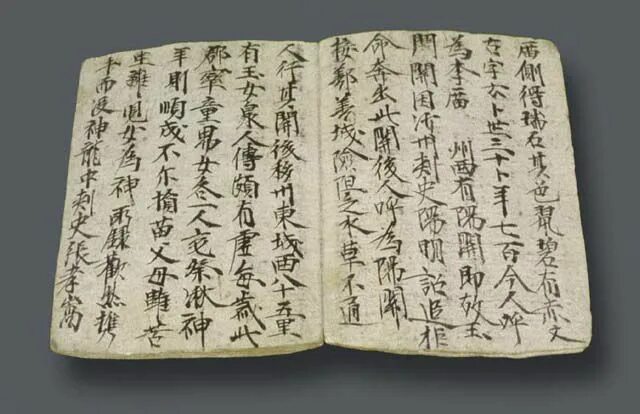 庿側得瑞石其色翠碧有赤文
古字云卜世三十卜年七百今人呼
為李庿 州西有陽關即故玉
門關因沙州刺史陽明詔追拒
命奔出此關後人呼為陽關
接鄯善城險阻乏水草不通
人行其關後移州東城西八十五里
有玉女泉人傳頗有虛每歲此
郡率童男女各一人充祭湫神
年則順成不尔損苗父母雖苦
生離児女為神所錄歡然攜
手而没神龍中刺史張孝嵩